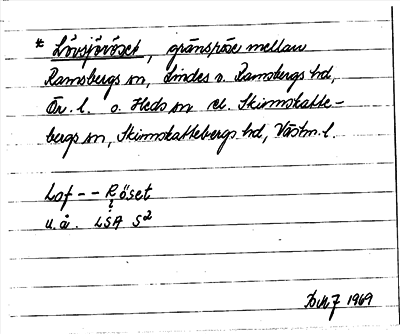 * Lövsjöröset, gränsröse mellan
Ramsbergs sn, Lindes o. Ramsbergs hd,
Ör. l. o. Heds sn
Skinnskatte-
bergs sn, Skinnskattebergs hd, Västm. l.
Lof - - Röset
u.å. LSA S2
1969